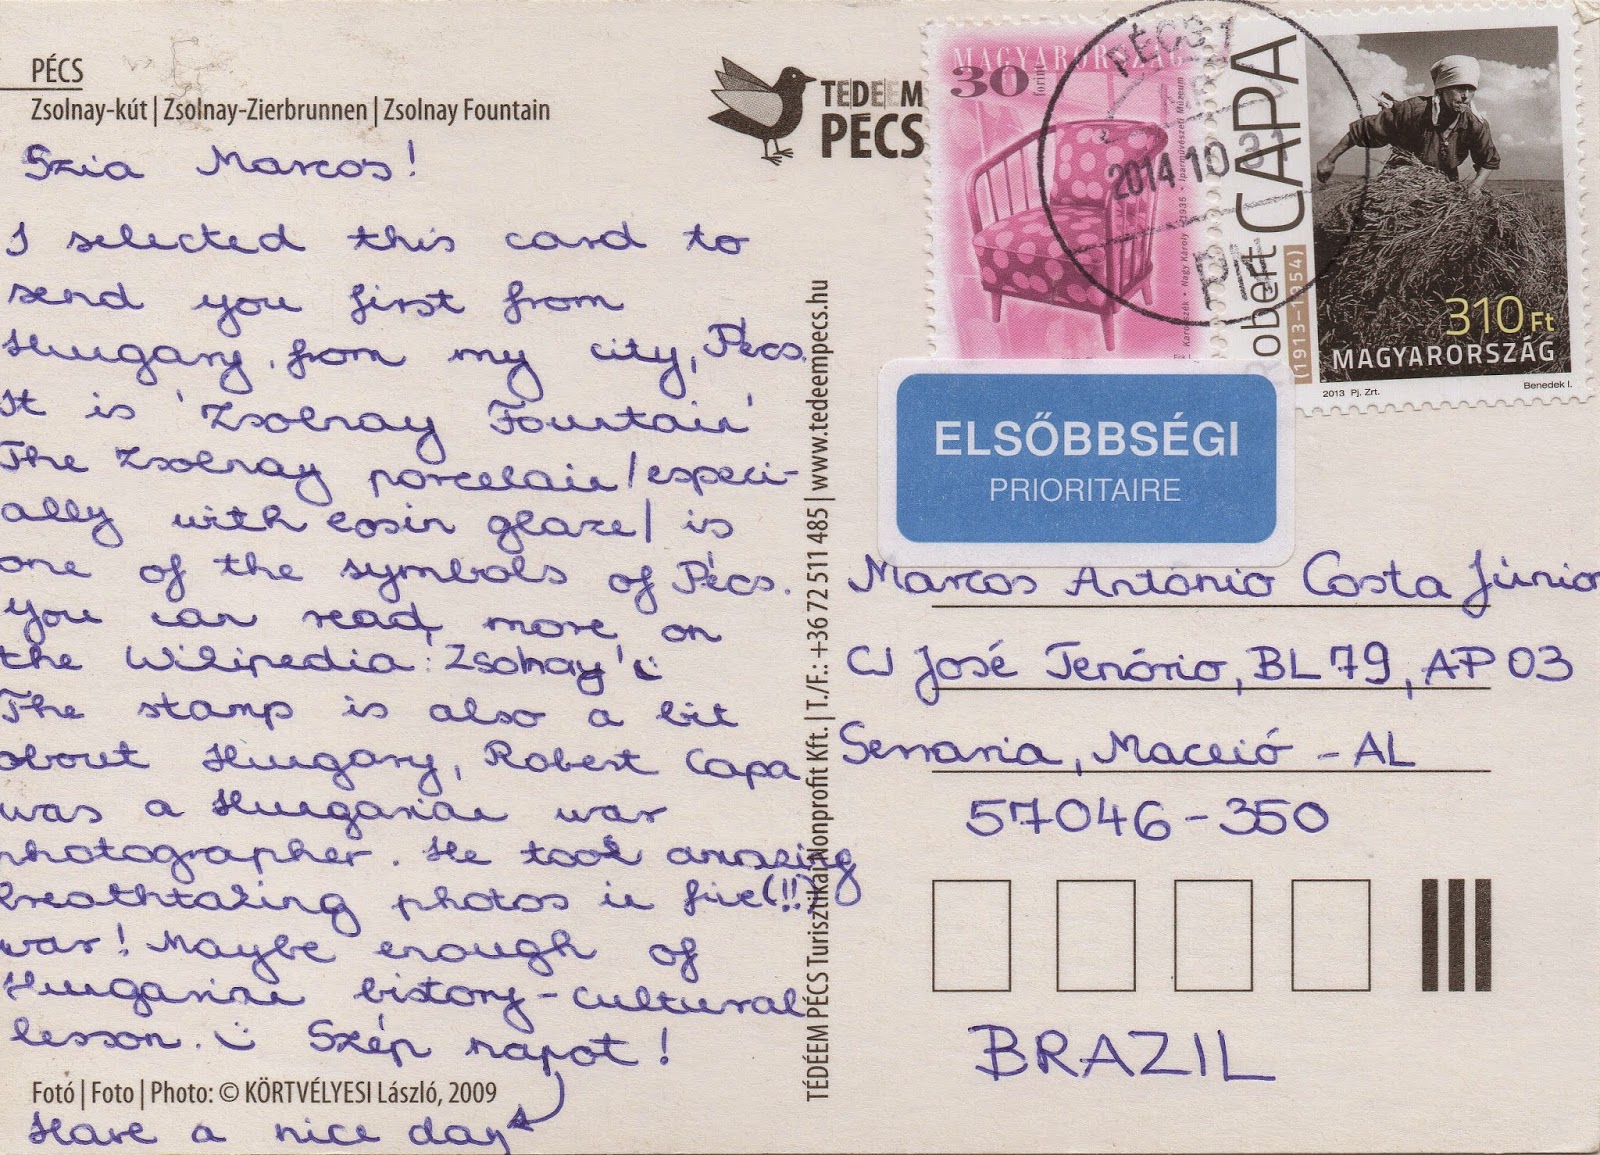 PÉCS
Zsolnay-kút | Zsolnay-Zierbrunnen | Zsolnay Fountain
TEDEEM
PÉCS
Szia Marcos!
I selected this card to
send you first from
Hungary, from my city, Pécs.
It is 'Zsolnay Fountain'
The Zsolnay porcelain /especi-
ally with eosin glaze/ is
one of the symbols of Pécs.
You can read more on
the Wikipedia: 'Zsolnay'
The stamp is also a bit
about Hungary, Robert Capa
was a Hungarian war
photographer. He took amazing
breathtaking photos in five(!!)
war! Maybe enough of
Hungarian history-cultural
lesson. Szép napot!
Fotó | Foto | Photo: © KÖRTVÉLYESI László, 2009
Have a nice day
TÉDÉEM PÉCS Turisztikai Nonprofit Kft. | T./F.: +36 72 511 485 | www.tedeempecs.hu
MAGYARORSZÁG
30
forint
Karosszék • Nagy Károly • 1935 • Iparművészeti Múzeum
PÉCS 1
2014 10 31
Robert CAPA
(1913-1954)
310 Ft
MAGYARORSZÁG
2013 Pj. Zrt.
Benedek I.
ELSŐBBSÉGI
PRIORITAIRE
Marcos António Costa Júnior
CJ José Tenório, BL 79, AP 03
Serraria, Maceió - AL
57046-350
BRAZIL